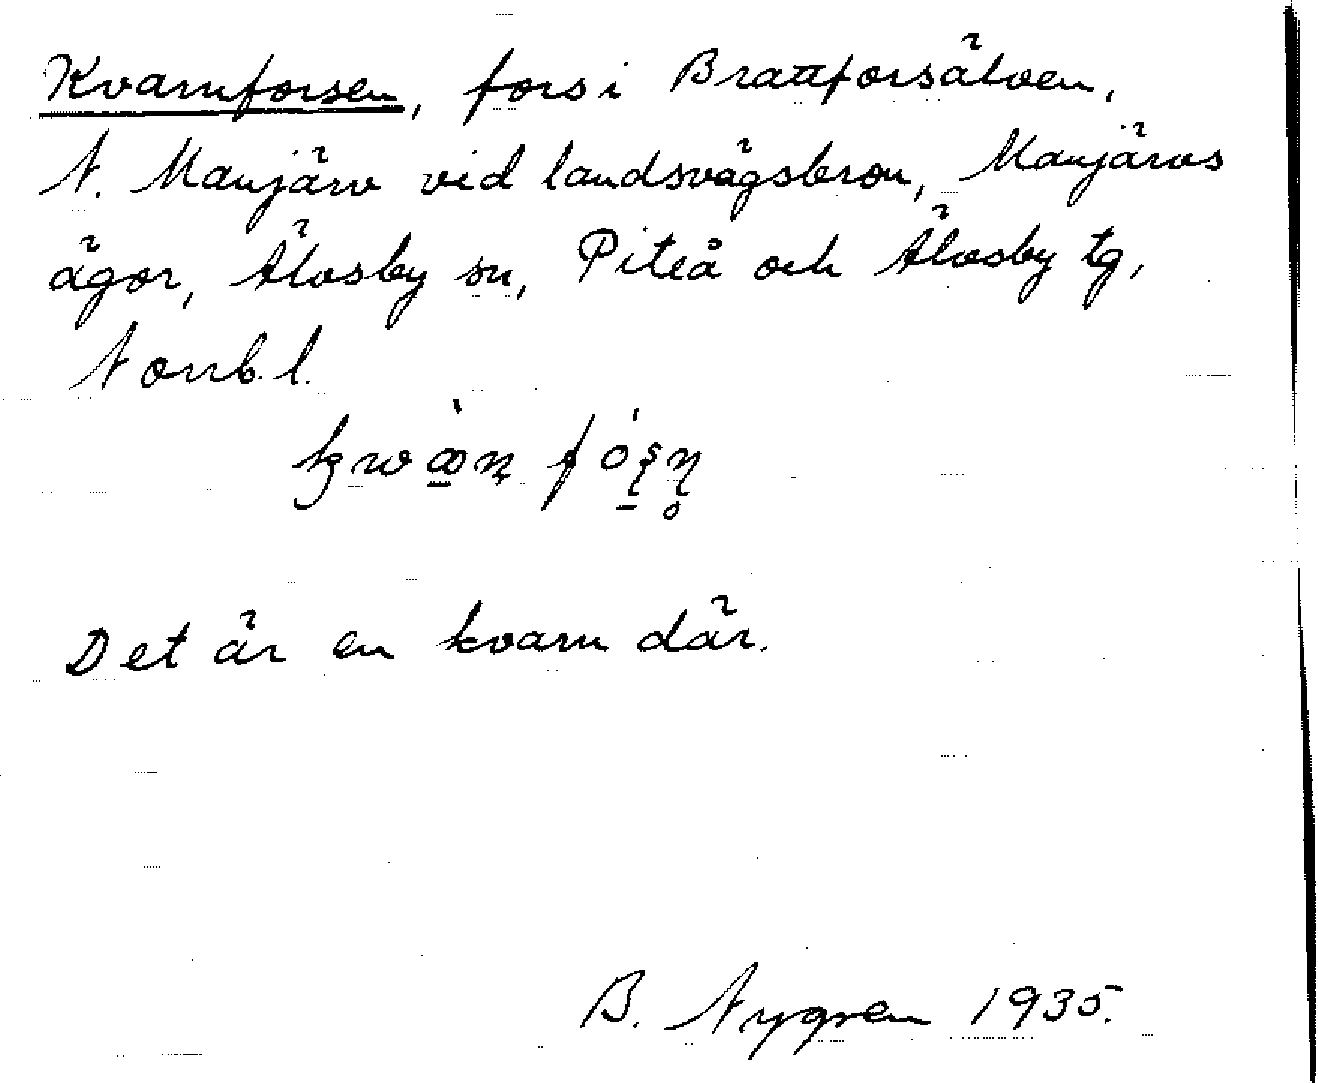 Kvarnforsen, fors i Brattforsälven,
N. Manjärv vid landsvägsbron, Manjärvs
ägor, Älvsby sn, Piteå och Älvsby tg,
Norrb. l.
Det är en kvarn där.
B. Nygren 1935.